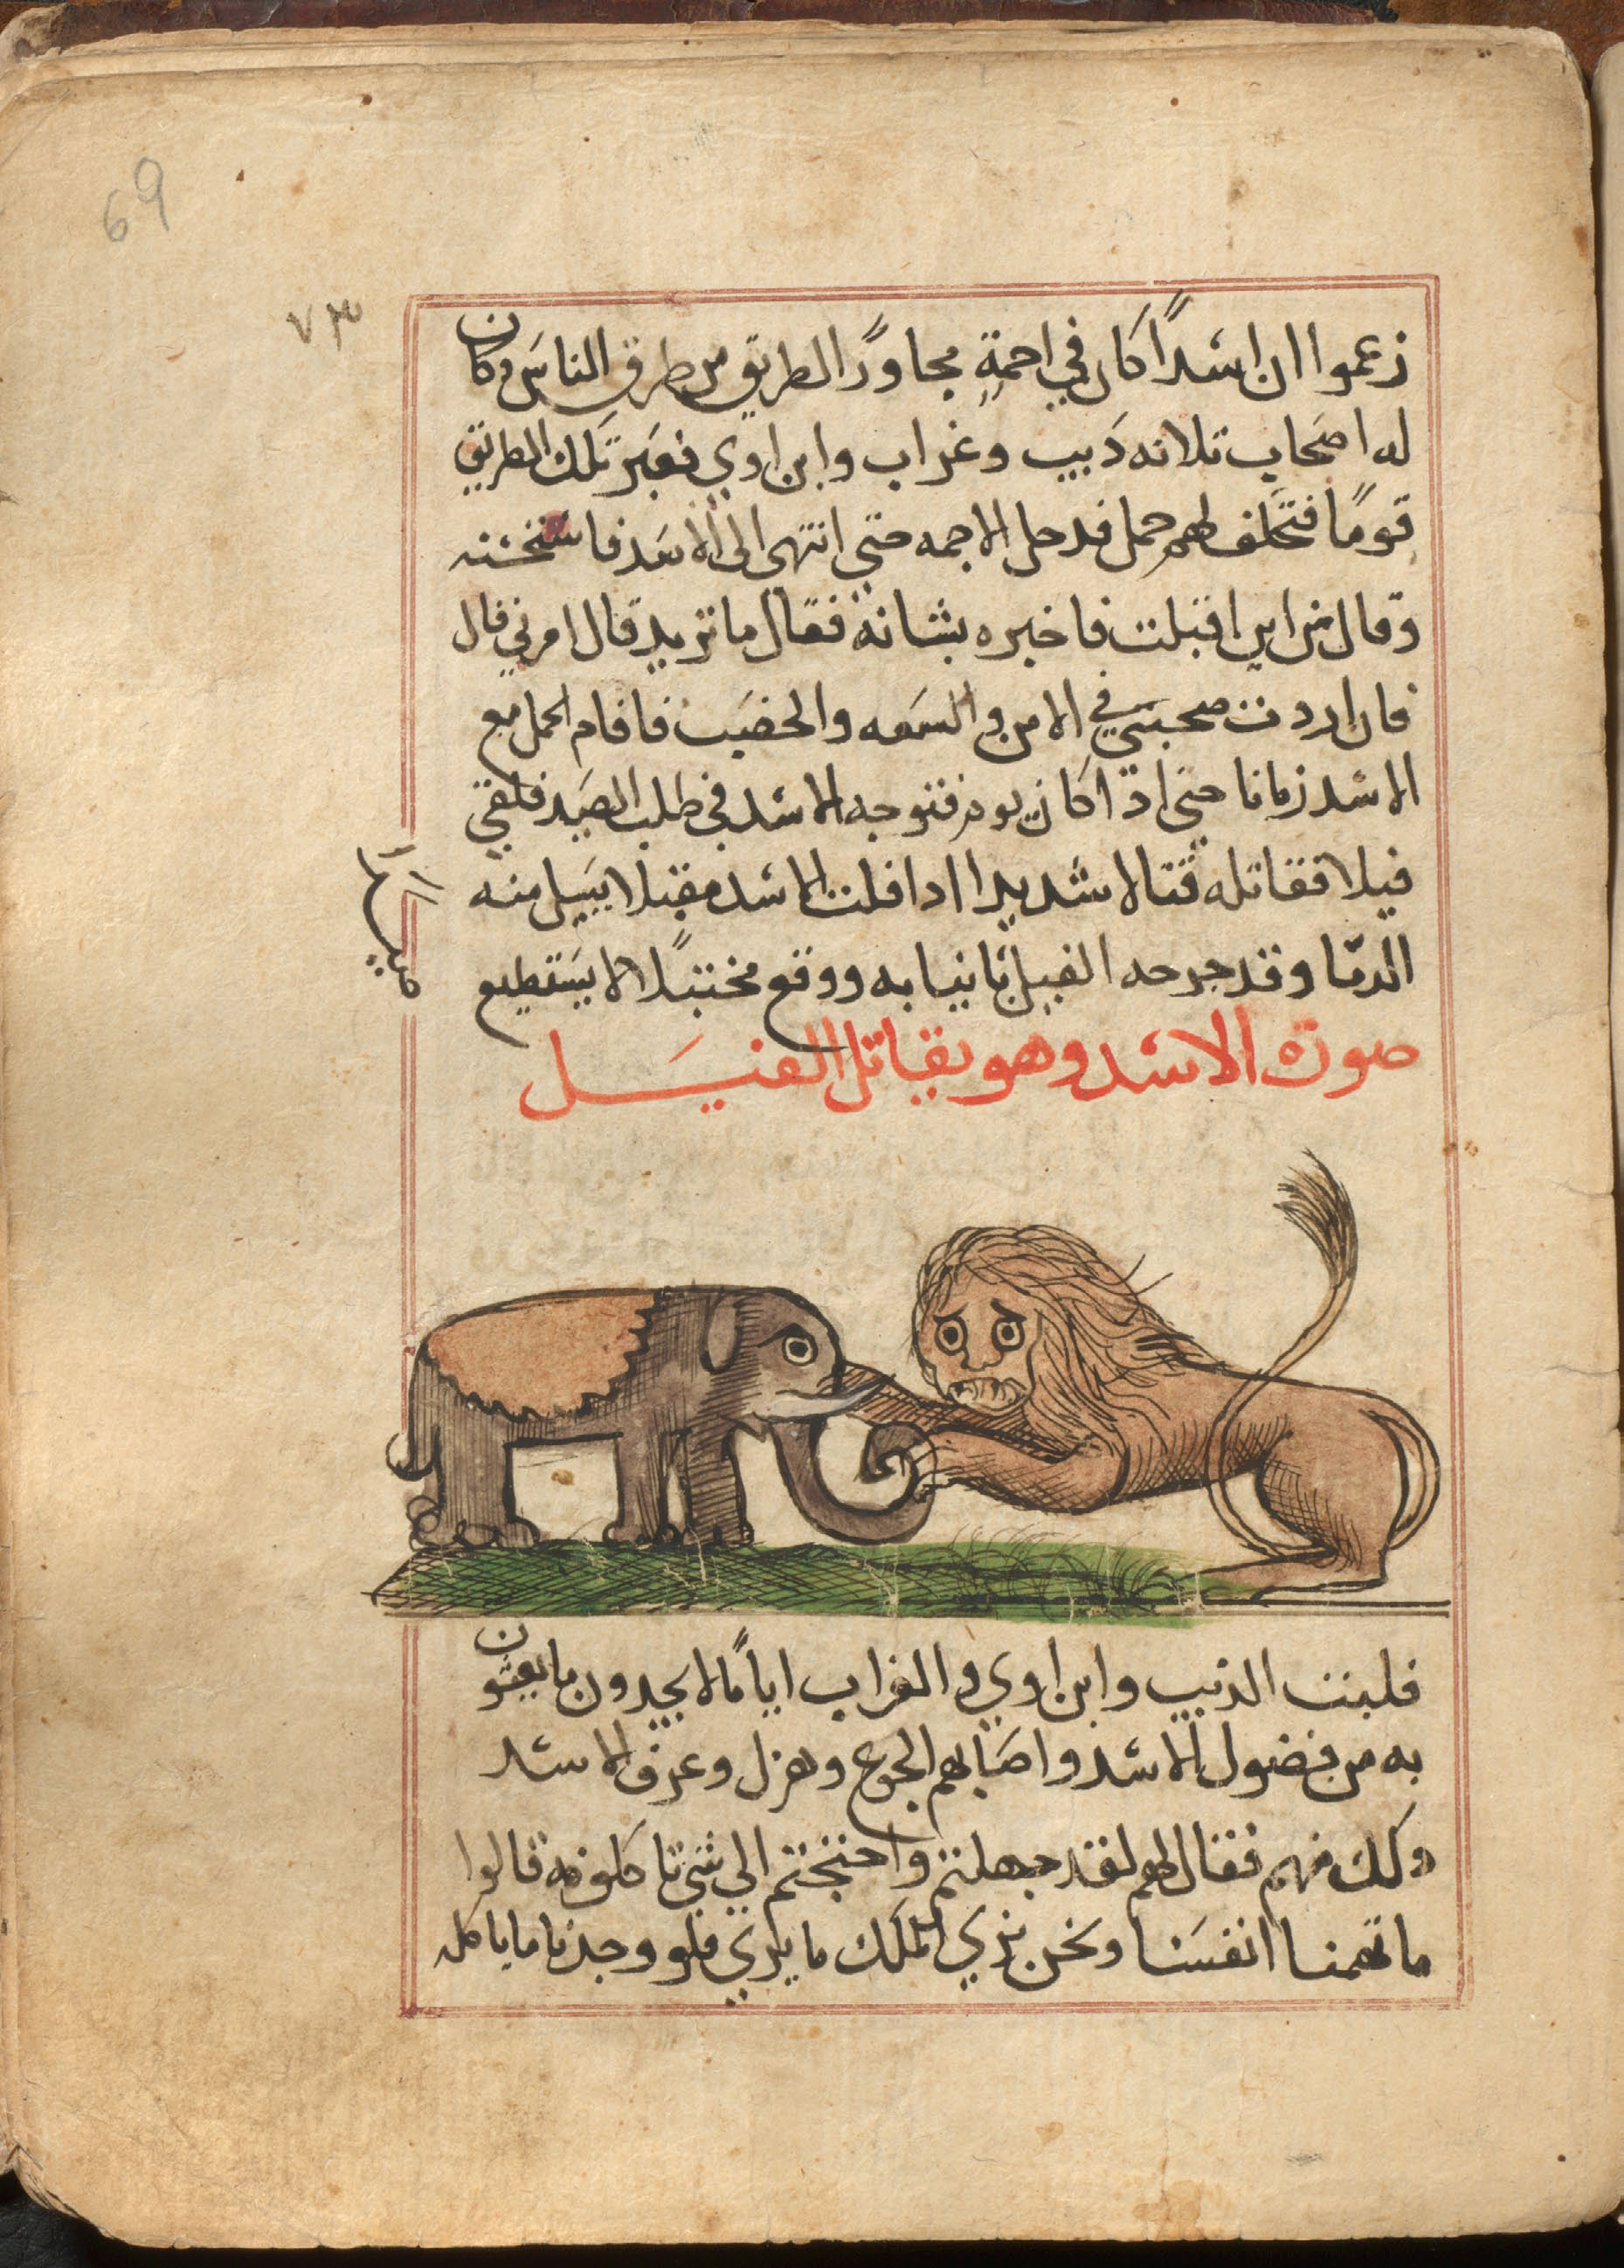 69
٧٣
زعموا ان اسدًا كان في اجمةٍ مجاورًا لطريق من طرق الناس وكان
له اصحاب ثلاثه دبيب وغراب وابن اوي فعبر تلك الطريق
قومًا فتخلف لهم جمل فدخل الاجمه حتي انتهى الى الاسد
وقال من اين اقبلت فاخبره بشانه فقال ما تريد قال امرني قال
فان اردت صحبتي في الامن والسعه والخصب فاقام الجمل مع
الاسد زمانا حتي اذا كان يوم فتوجه الاسد في طلب الصيد فلقي
فيلا فقاتله قتالا شديدا اذا فلت الاسد مقبلا يسيل منه
الدما وقد جرحه الفيل بانيابه ووقع لا يستطيع
صورة الاسد وهو يقاتل الفيل
فلبث الذيب وابن اوي والغراب ايامًا لا يجدون ما يعيشون
به من فضول الاسد واصابهم الجوع وهزل وعرف الاسد
ذلك منهم فقال لهم لقد جهلتم واحتجتم الي شي تاكلونه قالوا
ما تهمنا انفسنا ونحن نري الملك ما يري فلو وجدنا ما ياكله